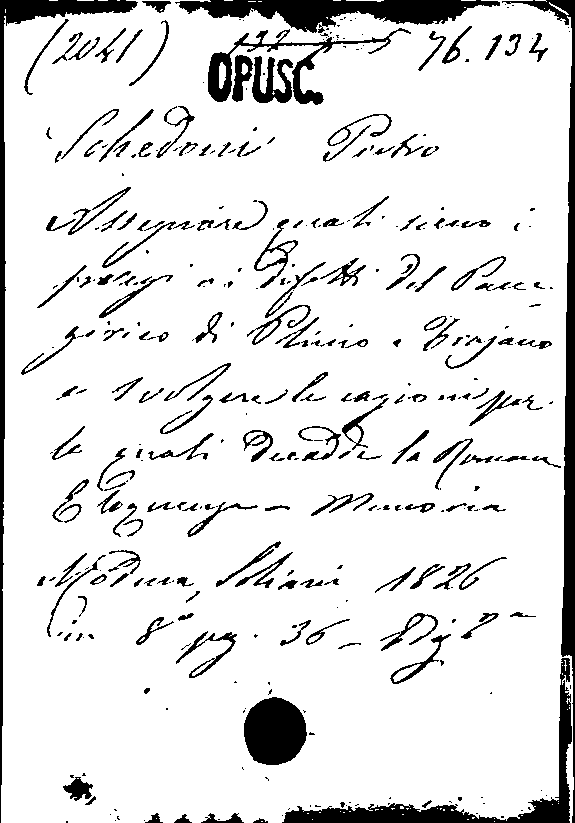 (2041) 132 5 76.134
OPUSC.
Schedoni Pietro
Assegnare quali sieno i
pregi e i difetti del Pane-
girico di Plinio a Trajano
e svolgere le cagioni per
le quali decadde la Romana
Eloquenza - Memoria
Modena, Soliani 1826
in 8° pag. 36 -